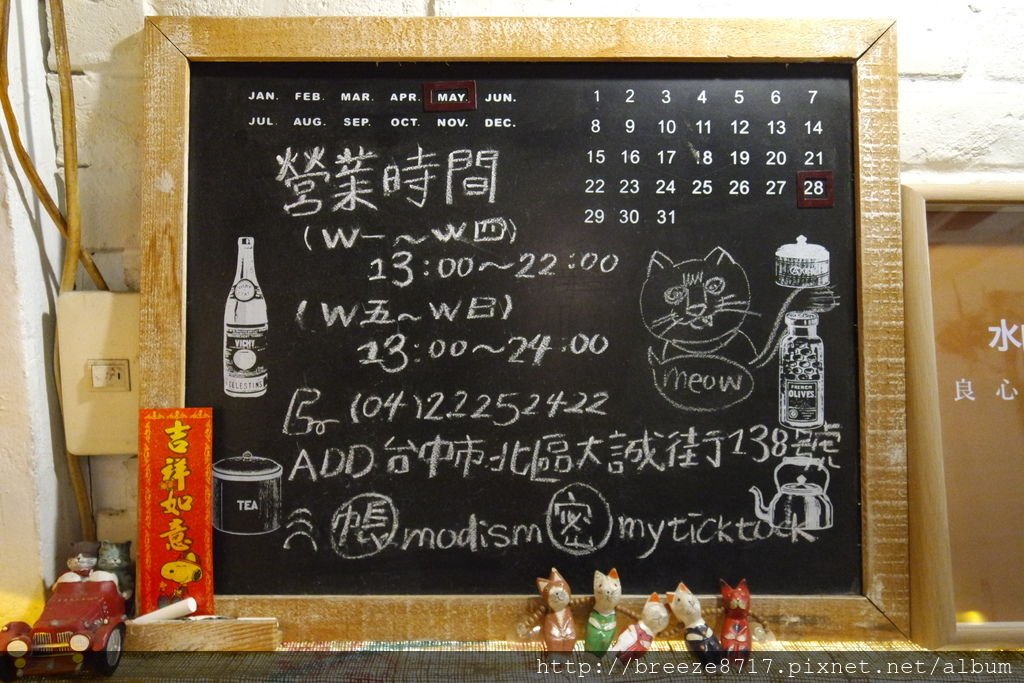 JAN. FEB. MAR. APR. MAY. JUN.
JUL. AUG. SEP. OCT. NOV. DEC.
1 2 3 4 5 6 7
8 9 10 11 12 13 14
15 16 17 18 19 20 21
22 23 24 25 26 27 28
29 30 31
營業時間
(W一～W四)
13:00～22:00
(W五～W日)
13:00～24:00
(04)22252422
ADD 台中市北區大誠街138號
帳 modism 密 myticktock
meow
VICHY
CELESTINS
FRENCH
OLIVES
TEA
吉祥如意
水
良心
http://breeze8717.pixnet.net/album